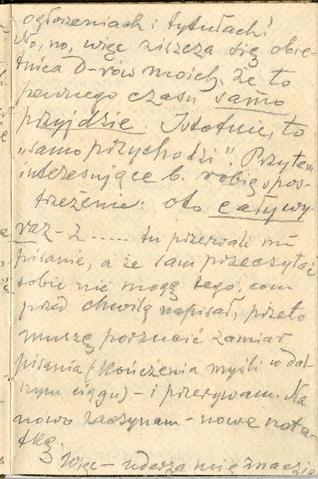 ogłoszeniach i tytułach!
No, no, więc ziszcza się obie-
tnica D-rów moich, że to
pewnego czasu samo
przyjdzie. Istotnie, to
„samo przychodzi". Przytem
interesujące b. robię spos-
trzeżenie: oto cały wy-
raz - z ..... tu przerwali mi
pisanie, a że sam przeczytać
sobie nie mogę tego, com
przed chwilą napisał, przeto
muszę porzucić zamiar
pisania (kończenia myśli w dal-
szym ciągu) - i przerywam. Na
nowo zaczynam - nowe nota-
tkę.
Więc - uderza mię znacznie